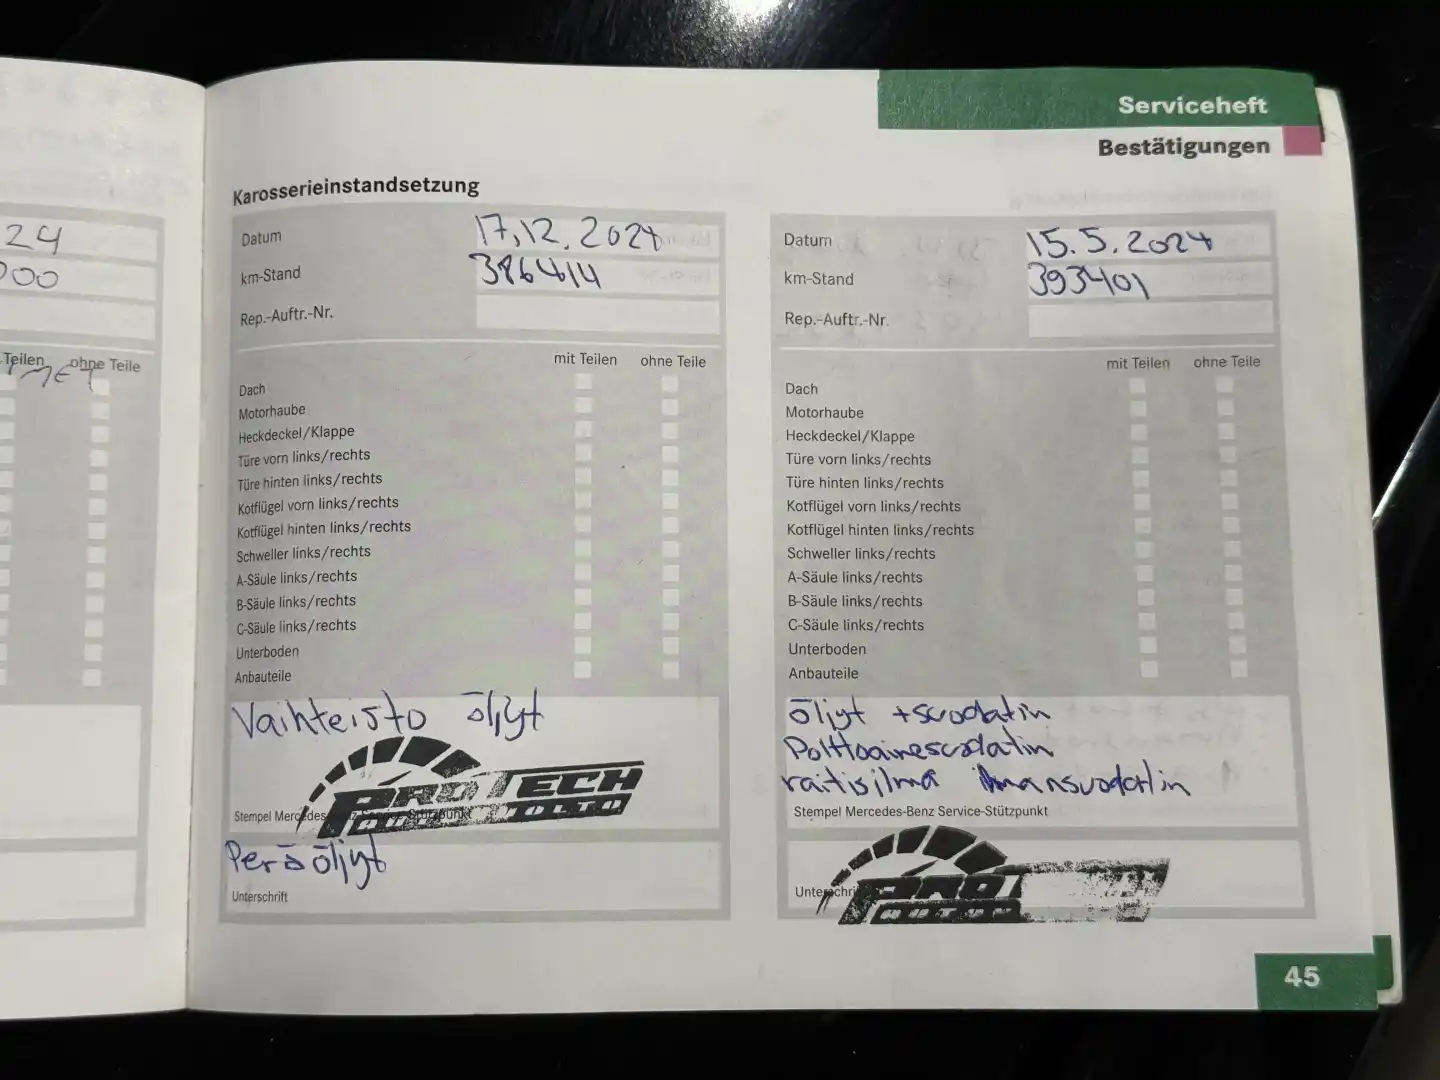 Serviceheft
Bestätigungen
24
000
Teilen ohne Teile
Karosserieinstandsetzung
Datum 17,12, 2024
km-Stand 386414
Rep.-Auftr.-Nr.
mit Teilen ohne Teile
Dach
Motorhaube
Heckdeckel/Klappe
Türe vorn links/rechts
Türe hinten links/rechts
Kotflügel vorn links/rechts
Kotflügel hinten links/rechts
Schweller links/rechts
A-Säule links/rechts
B-Säule links/rechts
C-Säule links/rechts
Unterboden
Anbauteile
Vaihteisto öljyt
PROTECH
AUTOHUOLTO
Stempel Mercedes-Benz Service-Stützpunkt
Perä öljyt
Unterschrift
Datum 15.5.2024
km-Stand 393401
Rep.-Auftr.-Nr.
mit Teilen ohne Teile
Dach
Motorhaube
Heckdeckel/Klappe
Türe vorn links/rechts
Türe hinten links/rechts
Kotflügel vorn links/rechts
Kotflügel hinten links/rechts
Schweller links/rechts
A-Säule links/rechts
B-Säule links/rechts
C-Säule links/rechts
Unterboden
Anbauteile
öljyt +suodatin
Polttoainesuodatin
raitisilma ilmansuodatin
Stempel Mercedes-Benz Service-Stützpunkt
Unterschri
PROT
45